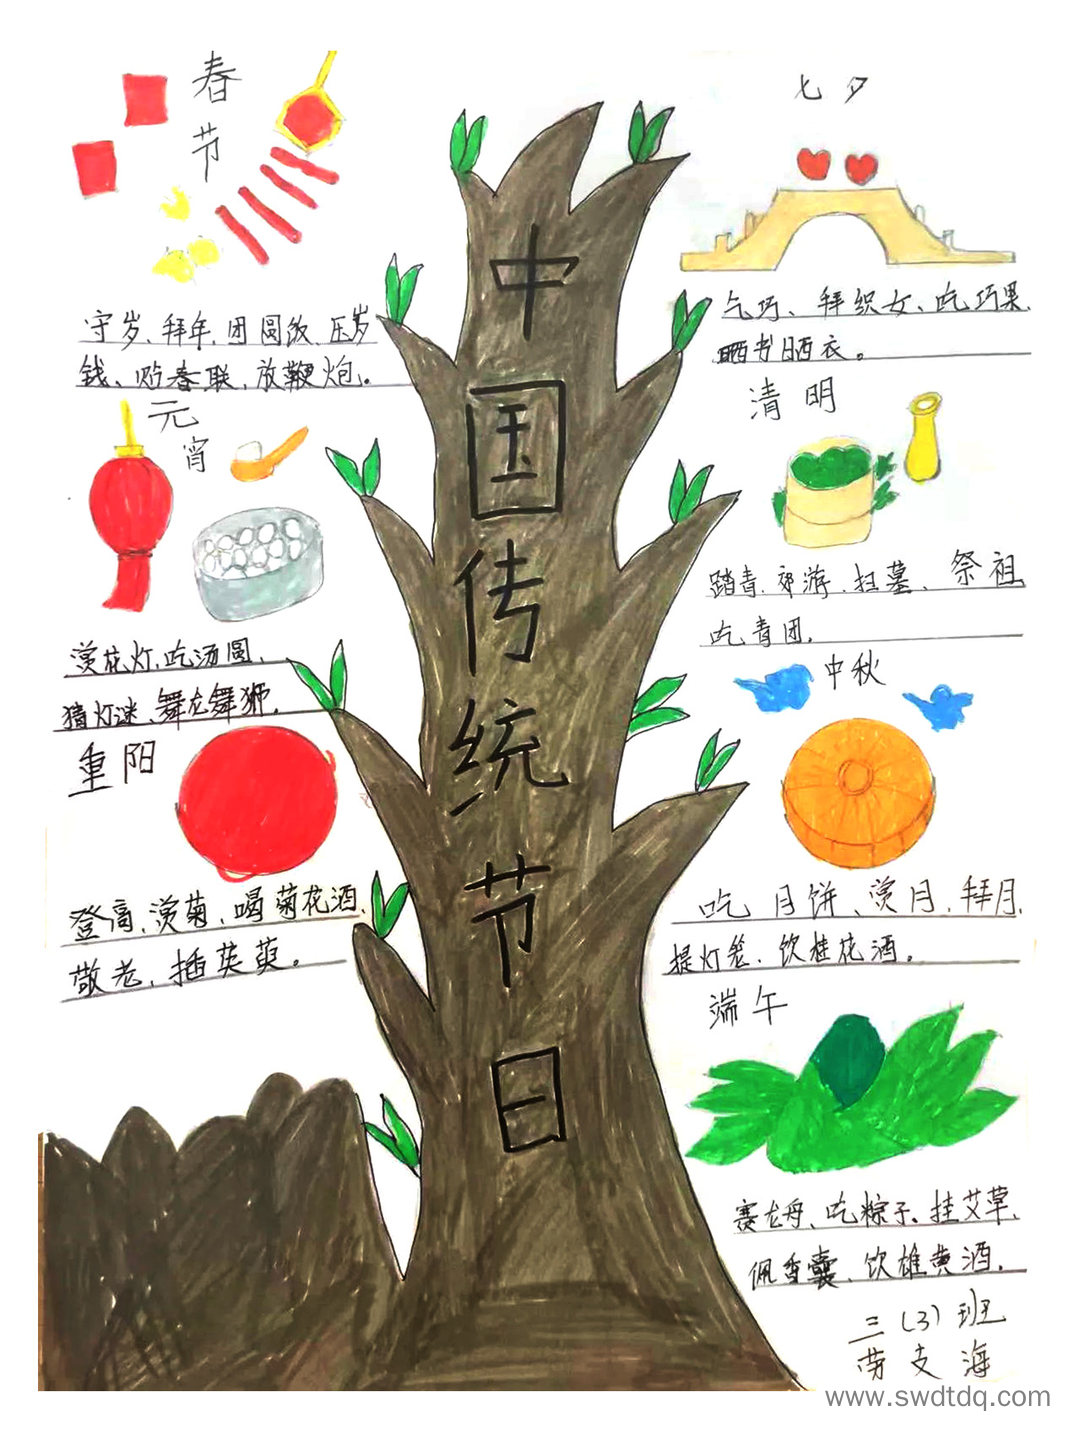 中国传统节日
春节
守岁、拜年、团圆饭、压岁
钱、贴春联、放鞭炮。
元宵
赏花灯、吃汤圆、
猜灯谜、舞龙舞狮。
重阳
登高、赏菊、喝菊花酒、
敬老、插茱萸。
七夕
乞巧、拜织女、吃巧果
晒书晒衣。
清明
踏青、郊游、扫墓、祭祖
吃青团。
中秋
吃月饼、赏月、拜月、
提灯笼、饮桂花酒。
端午
赛龙舟、吃粽子、挂艾草、
佩香囊、饮雄黄酒。
三(3)班
支海
www.swdtdq.com